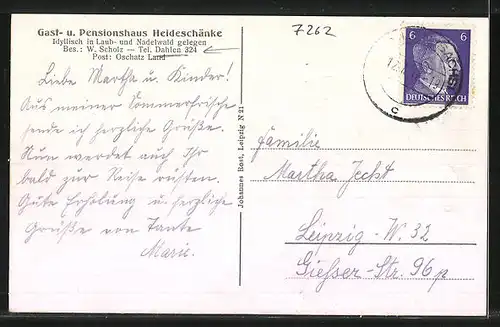 Gast- u. Pensionshaus Heideschänke
Idyllisch in Laub- und Nadelwald gelegen
Bes.: W. Scholz — Tel. Dahlen 324
Post: Oschatz Land
7262
Liebe Martha u. Kinder!
Aus meiner Sommerfrische
sende ich herzliche Grüße.
Nun werdet auch Ihr
bald zur Reise rüsten.
Gute Erholung u. herzliche
Grüße von Tante
Marie.
Johannes Rost, Leipzig N 21
6 6
DEUTSCHES REICH
c
Familie
Martha
Leipzig - W. 32
Gießer-Str. 96p